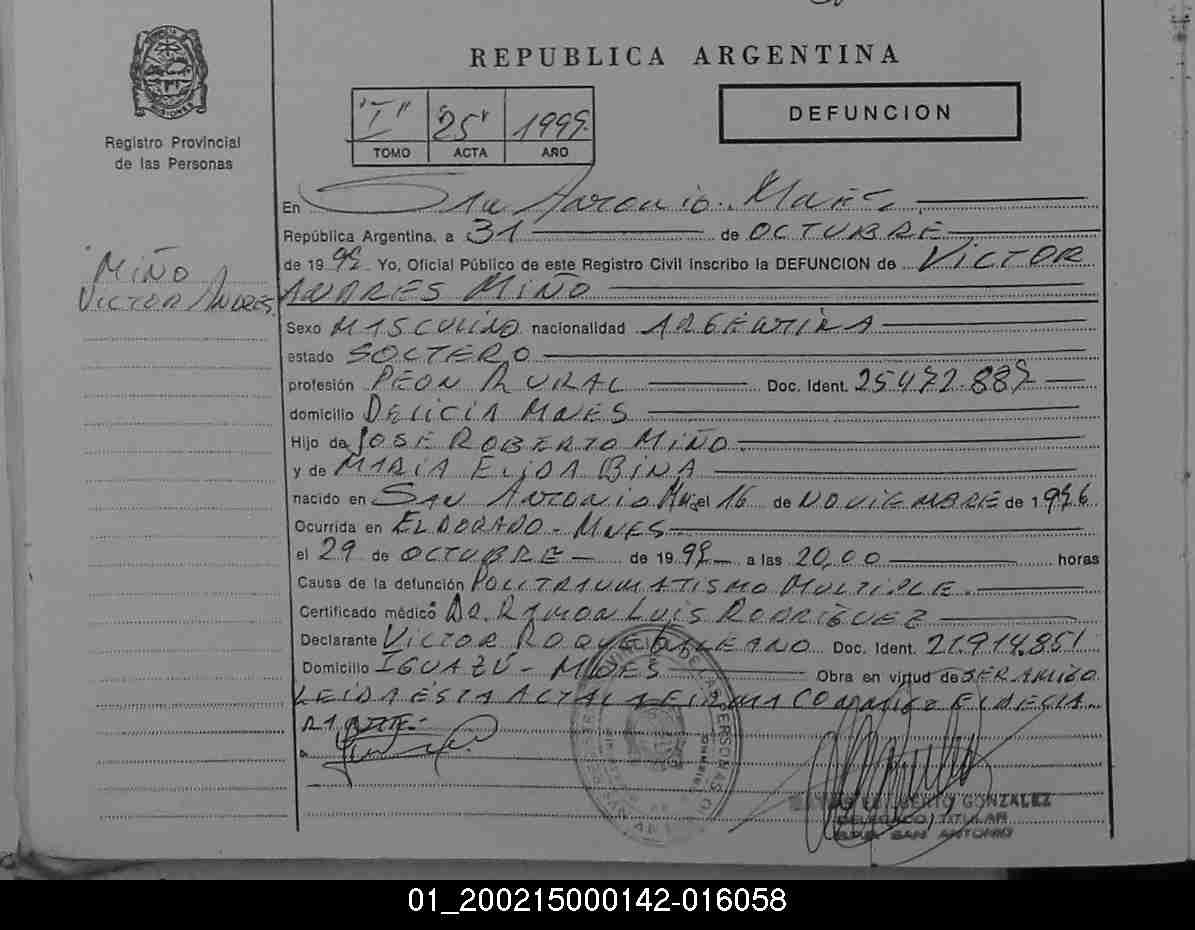 REPUBLICA ARGENTINA
Registro Provincial
de las Personas
"I" "25" 1999
TOMO ACTA AÑO
DEFUNCION
MIÑO
VICTOR ANDRES
En San Antonio. Mnes.
República Argentina, a 31 de OCTUBRE
de 1999 Yo, Oficial Público de este Registro Civil inscribo la DEFUNCION de VICTOR
ANDRES MIÑO
Sexo MASCULINO nacionalidad ARGENTINA
estado SOLTERO
profesión PEON RURAL Doc. Ident. 25.472.887
domicilio DELICIA MNES
Hijo de JOSE ROBERTO MIÑO.
y de MARIA ELIDA BINA
nacido en SAN ANTONIO Mnes el 16 de NOVIEMBRE de 1976
Ocurrida en ELDORADO - MNES
el 29 de OCTUBRE de 1999 a las 20,00 horas
Causa de la defunción POLITRAUMATISMO MULTIPLE.
Certificado médico DR. RAMON LUIS RODRIGUEZ
Declarante VICTOR ROQUE GALEANO Doc. Ident. 21.914.851
Domicilio IGUAZÚ - MNES Obra en virtud de SER AMIGO
LEIDA ESTA ACTA LA FIRMA CONMIGO EL DECLA
RANTE.-
GONZALEZ
DELEGADO TITULAR
SAN ANTONIO
01_200215000142-016058